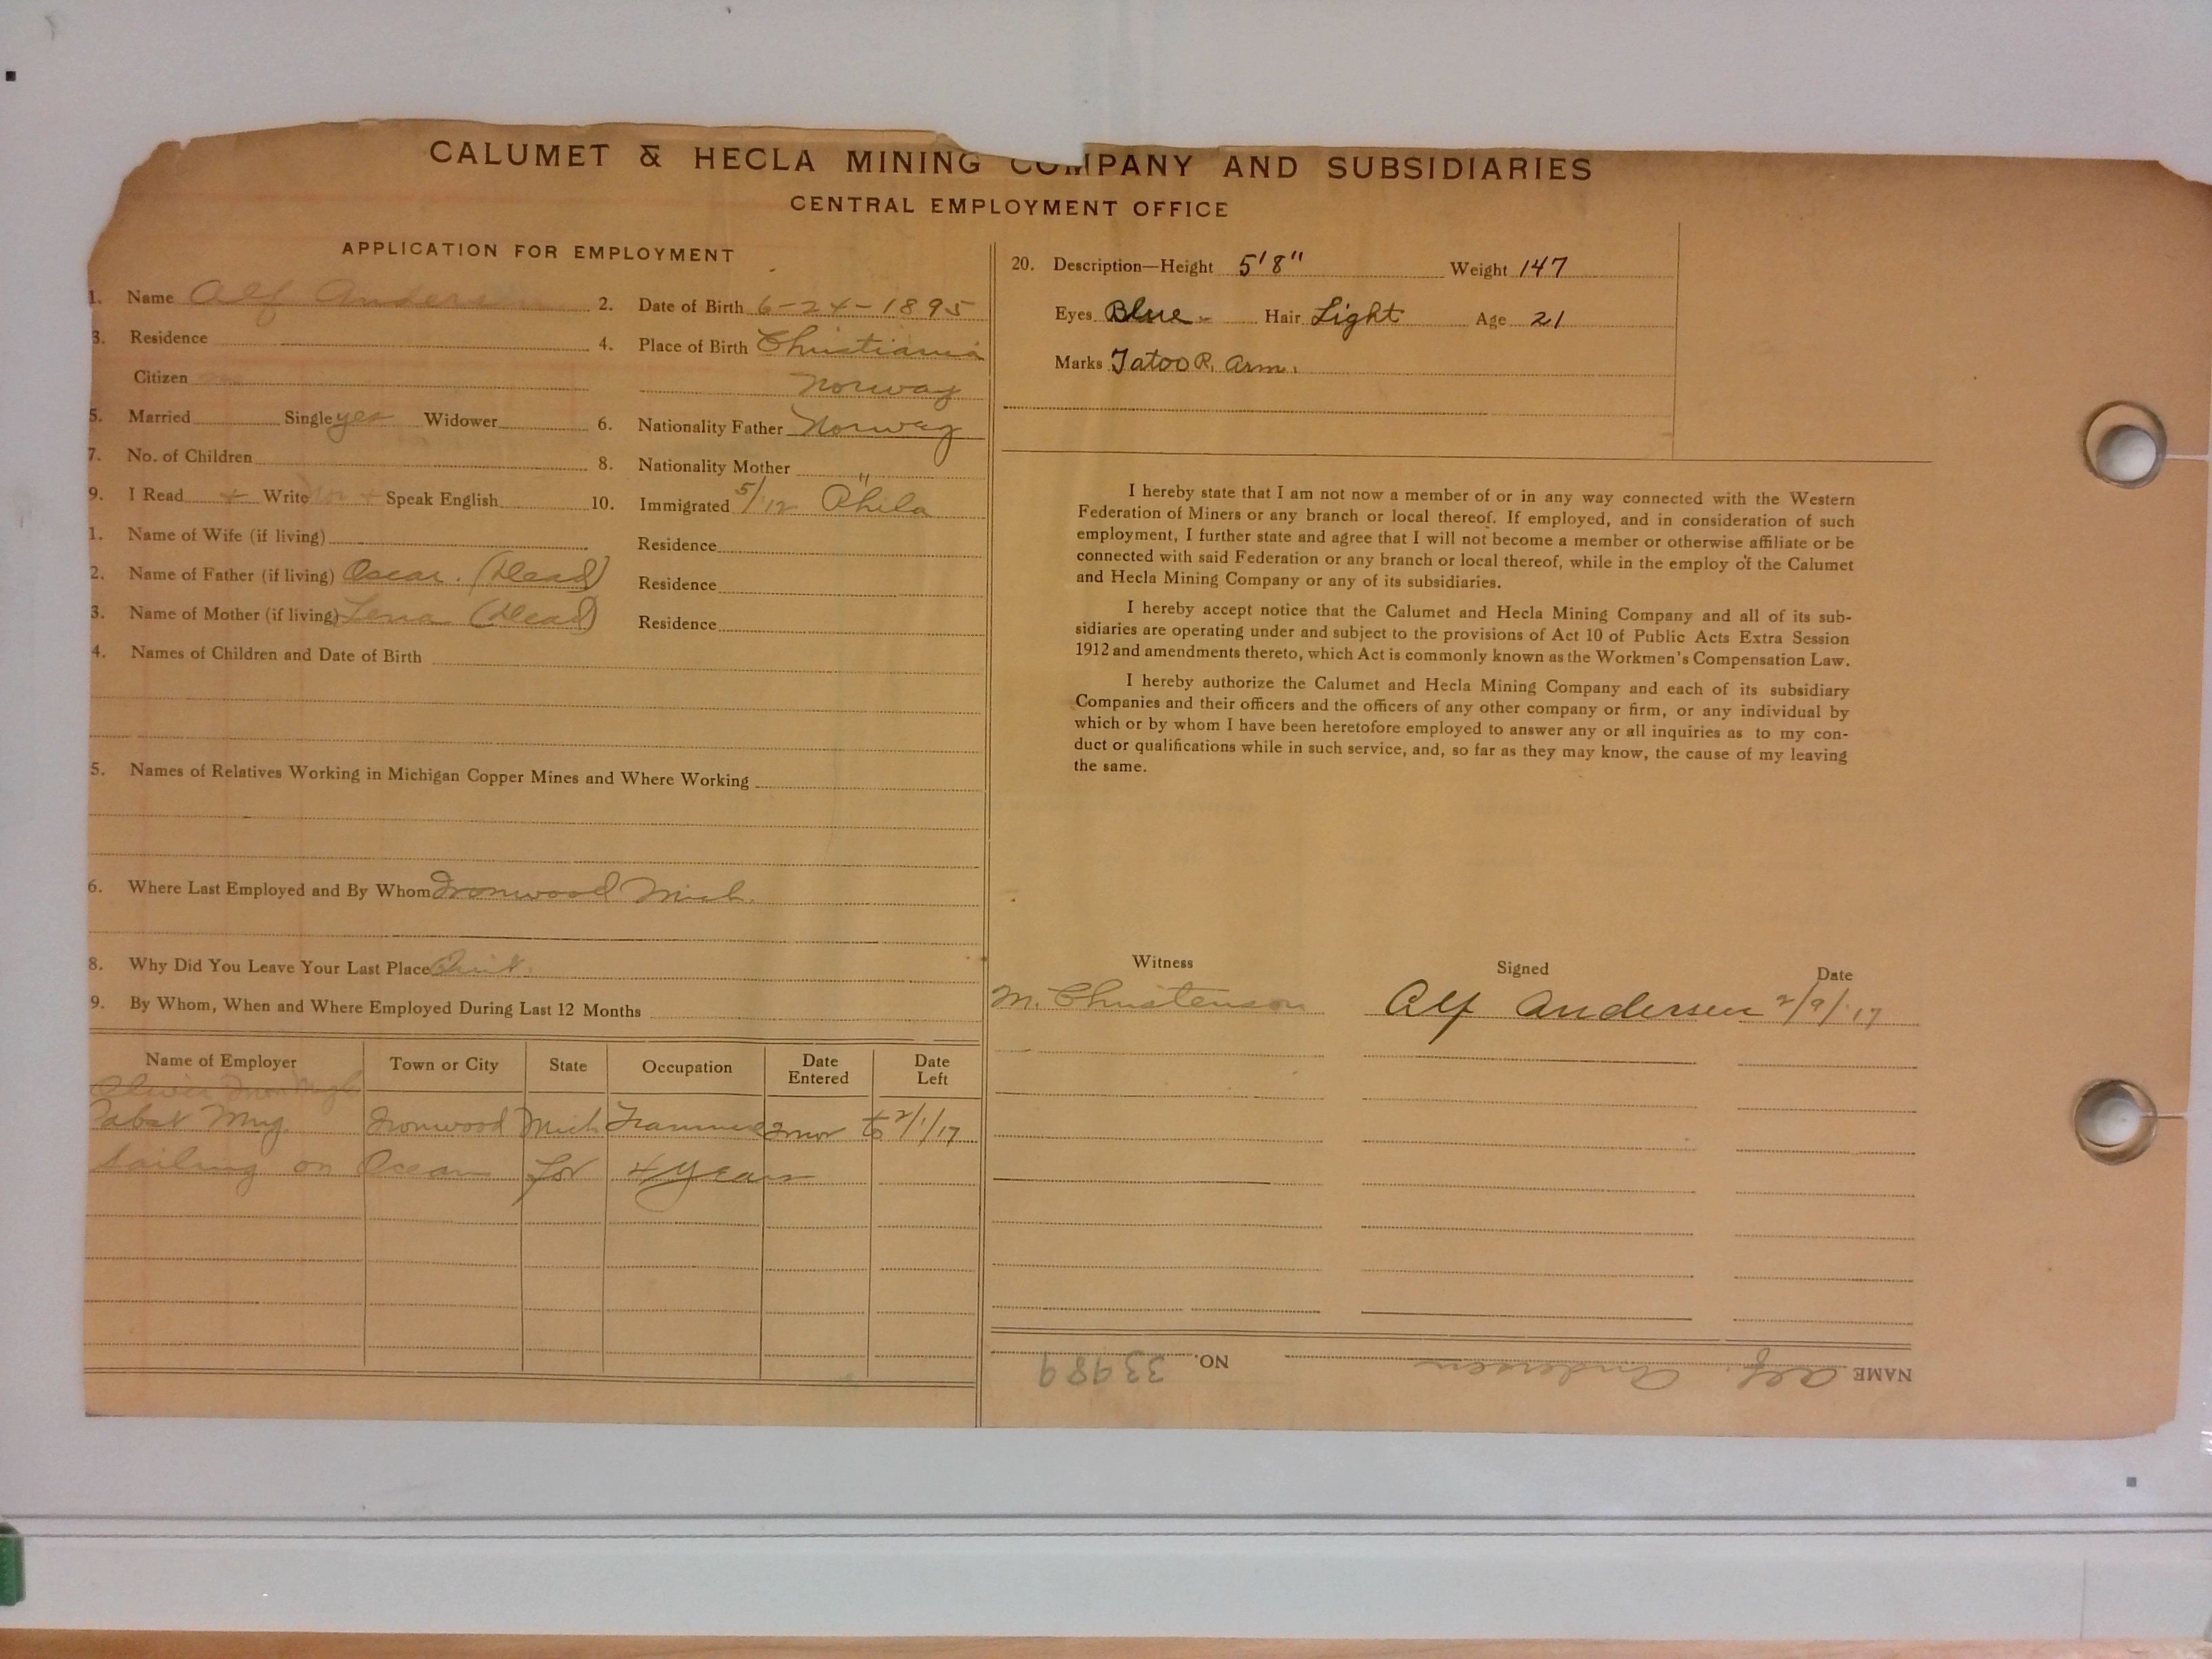 CALUMET & HECLA MINING COMPANY AND SUBSIDIARIES
CENTRAL EMPLOYMENT OFFICE
APPLICATION FOR EMPLOYMENT
1. Name Alf Andersen 2. Date of Birth 6-24-1895
3. Residence 4. Place of Birth Christiania
Citizen Norway
5. Married Single yes Widower 6. Nationality Father Norway
7. No. of Children 8. Nationality Mother "
9. I Read + Write + Speak English 10. Immigrated 5/12 Phila
1. Name of Wife (if living) Residence
2. Name of Father (if living) Oscar. (Dead) Residence
3. Name of Mother (if living) Lena (Dead) Residence
4. Names of Children and Date of Birth
5. Names of Relatives Working in Michigan Copper Mines and Where Working
6. Where Last Employed and By Whom Ironwood Mich.
8. Why Did You Leave Your Last Place Quit.
9. By Whom, When and Where Employed During Last 12 Months
Name of Employer Town or City State Occupation Date Entered Date Left
Oliver Iron
Pabst Mng. Ironwood Mich Trammer to 2/1/17
Sailing on Ocean for 4 years
20. Description—Height 5'8" Weight 147
Eyes Blue Hair Light Age 21
Marks Tatoo R. Arm.
I hereby state that I am not now a member of or in any way connected with the Western
Federation of Miners or any branch or local thereof. If employed, and in consideration of such
employment, I further state and agree that I will not become a member or otherwise affiliate or be
connected with said Federation or any branch or local thereof, while in the employ of the Calumet
and Hecla Mining Company or any of its subsidiaries.
I hereby accept notice that the Calumet and Hecla Mining Company and all of its sub-
sidiaries are operating under and subject to the provisions of Act 10 of Public Acts Extra Session
1912 and amendments thereto, which Act is commonly known as the Workmen's Compensation Law.
I hereby authorize the Calumet and Hecla Mining Company and each of its subsidiary
Companies and their officers and the officers of any other company or firm, or any individual by
which or by whom I have been heretofore employed to answer any or all inquiries as to my con-
duct or qualifications while in such service, and, so far as they may know, the cause of my leaving
the same.
Witness Signed Date
M. Christenson Alf Andersen 2/9/17
NAME Alf. Andersen NO. 33989